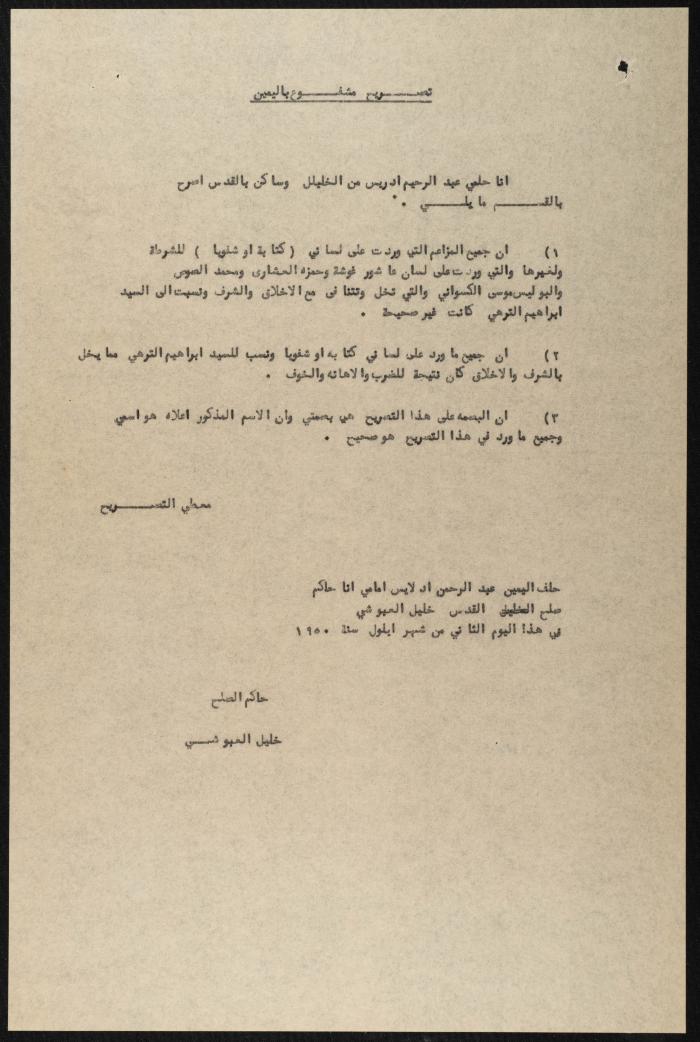 تصـــريح مشفـــوع باليمين
انا حلمي عبد الرحيم ادريس من الخليلل وساكن بالقدس اصرح
بالقـــــم ما يلـــي .
١) ان جميع المزاعم التي وردت على لساني ( كتابة او شفويا ) للشرطة
ولغيرها والتي وردت على لسان عاشور فوشة وحمزه العشارى ومحمد الصوص
والبوليس موسى الكسواني والتي تخل وتتنافى مع الاخلاق والشرف ونسبت الى السيد
ابراهيم الترهي كانت غير صحيحة .
٢) ان جميع ما ورد على لساني كتابه او شفويا ونسب للسيد ابراهيم الترهي مما يخل
بالشرف والاخلاق كان نتيجة للضرب والاهانه والخوف .
٣) ان البصمه على هذا التصريح هي بصمتي وان الاسم المذكور اعلاه هو اسمي
وجميع ما ورد في هذا التصريح هو صحيح .
معطي التصـــريح
حلف اليمين عبد الرحمن اد لايس امامي انا حاكم
صلح القدس خليل العبوشي
في هذا اليوم الثاني من شهر ايلول سنة ١٩٥٠
حاكم الصلح
خليل العبوشـــي